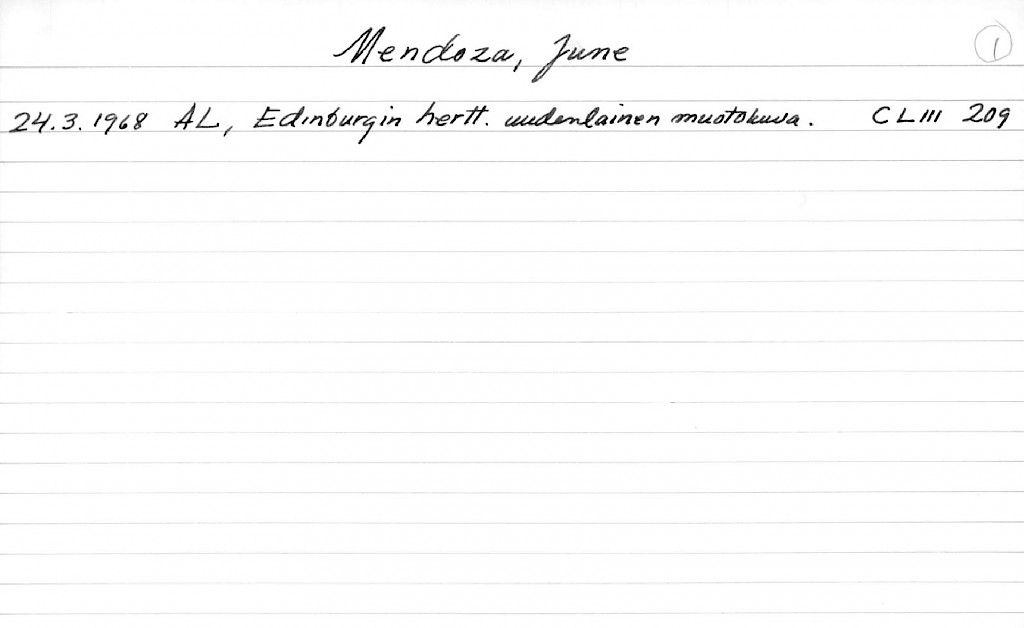 Mendoza, June
1
24.3.1968 AL, Edinburgin hertt. uudenlainen muotokuva. CLIII 209